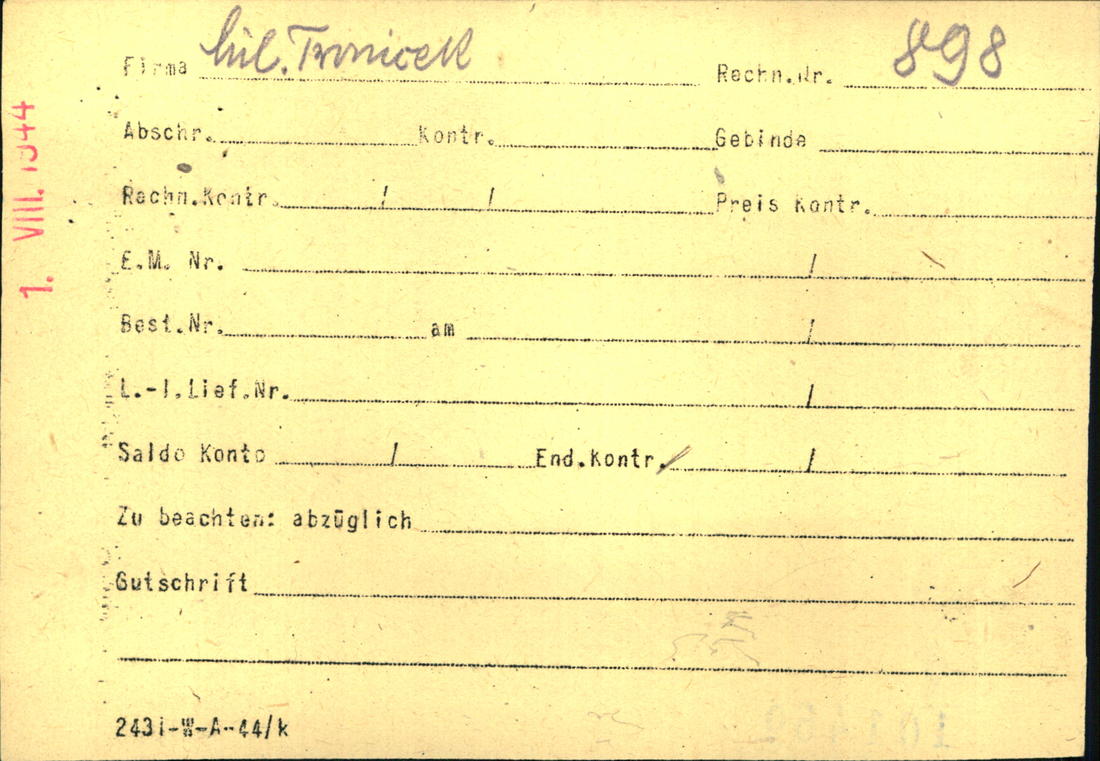 Firma Tronicek Rechn.Nr. 898
Abschr. Kontr. Gebinde
Rechn.Kontr. / / Preis Kontr.
E.M. Nr. /
Best.Nr. am /
L.-I.Lief.Nr. /
Saldo Konto / End.Kontr. /
Zu beachten: abzüglich
Gutschrift
2431-W-A-44/k
1. VIII. 1944